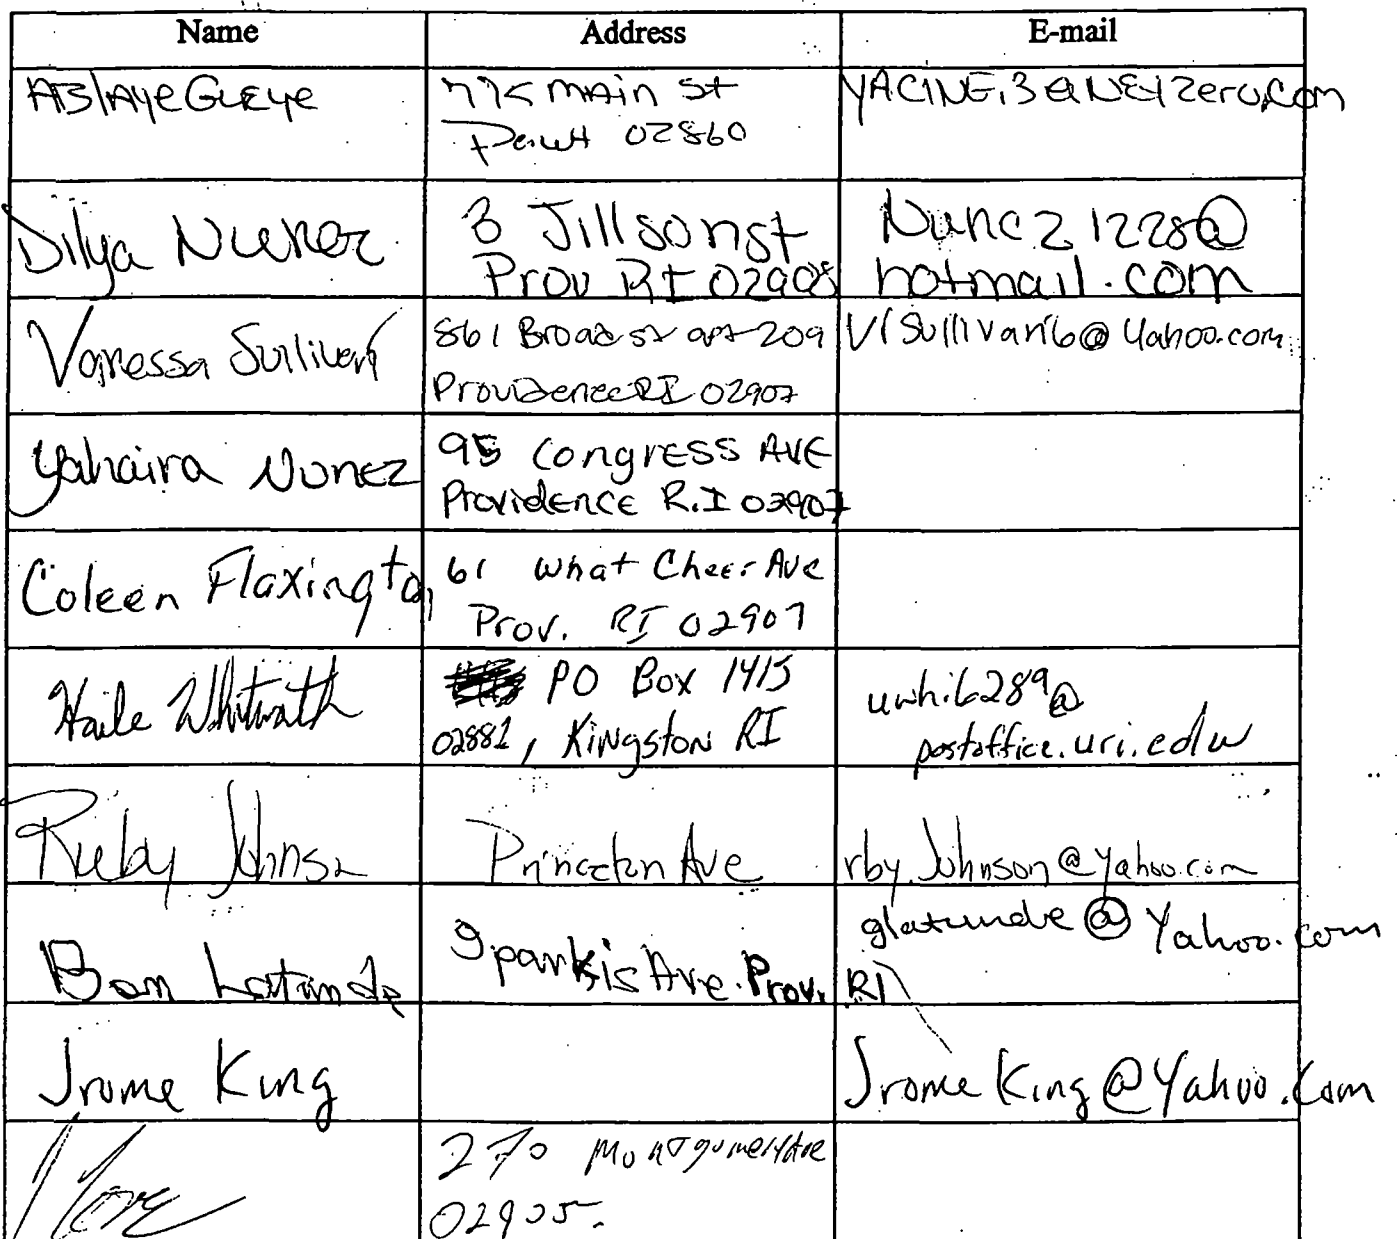 Name Address E-mail
ABlAye GuEye 775 mAin St YACINE.3@NEtZero.com
Pawt 02860
Dilya Nunez 3 Jillson st Nunez1228@
Prov RI 02908 hotmail.com
Vanessa Sullivan 861 Broad st apt 209 V1Sullivan16@Yahoo.com
Providence RI 02907
Yahaira Nunez 95 Congress AVE
Providence R.I 02907
Coleen Flaxington 61 What Cheer Ave
Prov. RI 02907
Haile Whitwath PO Box 1415 uwhi6289@
02881, Kingston RI postoffice.uri.edu
Ruby Johnson Princeton Ave rby.Johnson@yahoo.com
Bam Latunde 9 parkis Ave. Prov. RI glatunde@Yahoo.com
Jrome King Jrome King@Yahoo.Com
270 Montgomery Ave
02905.